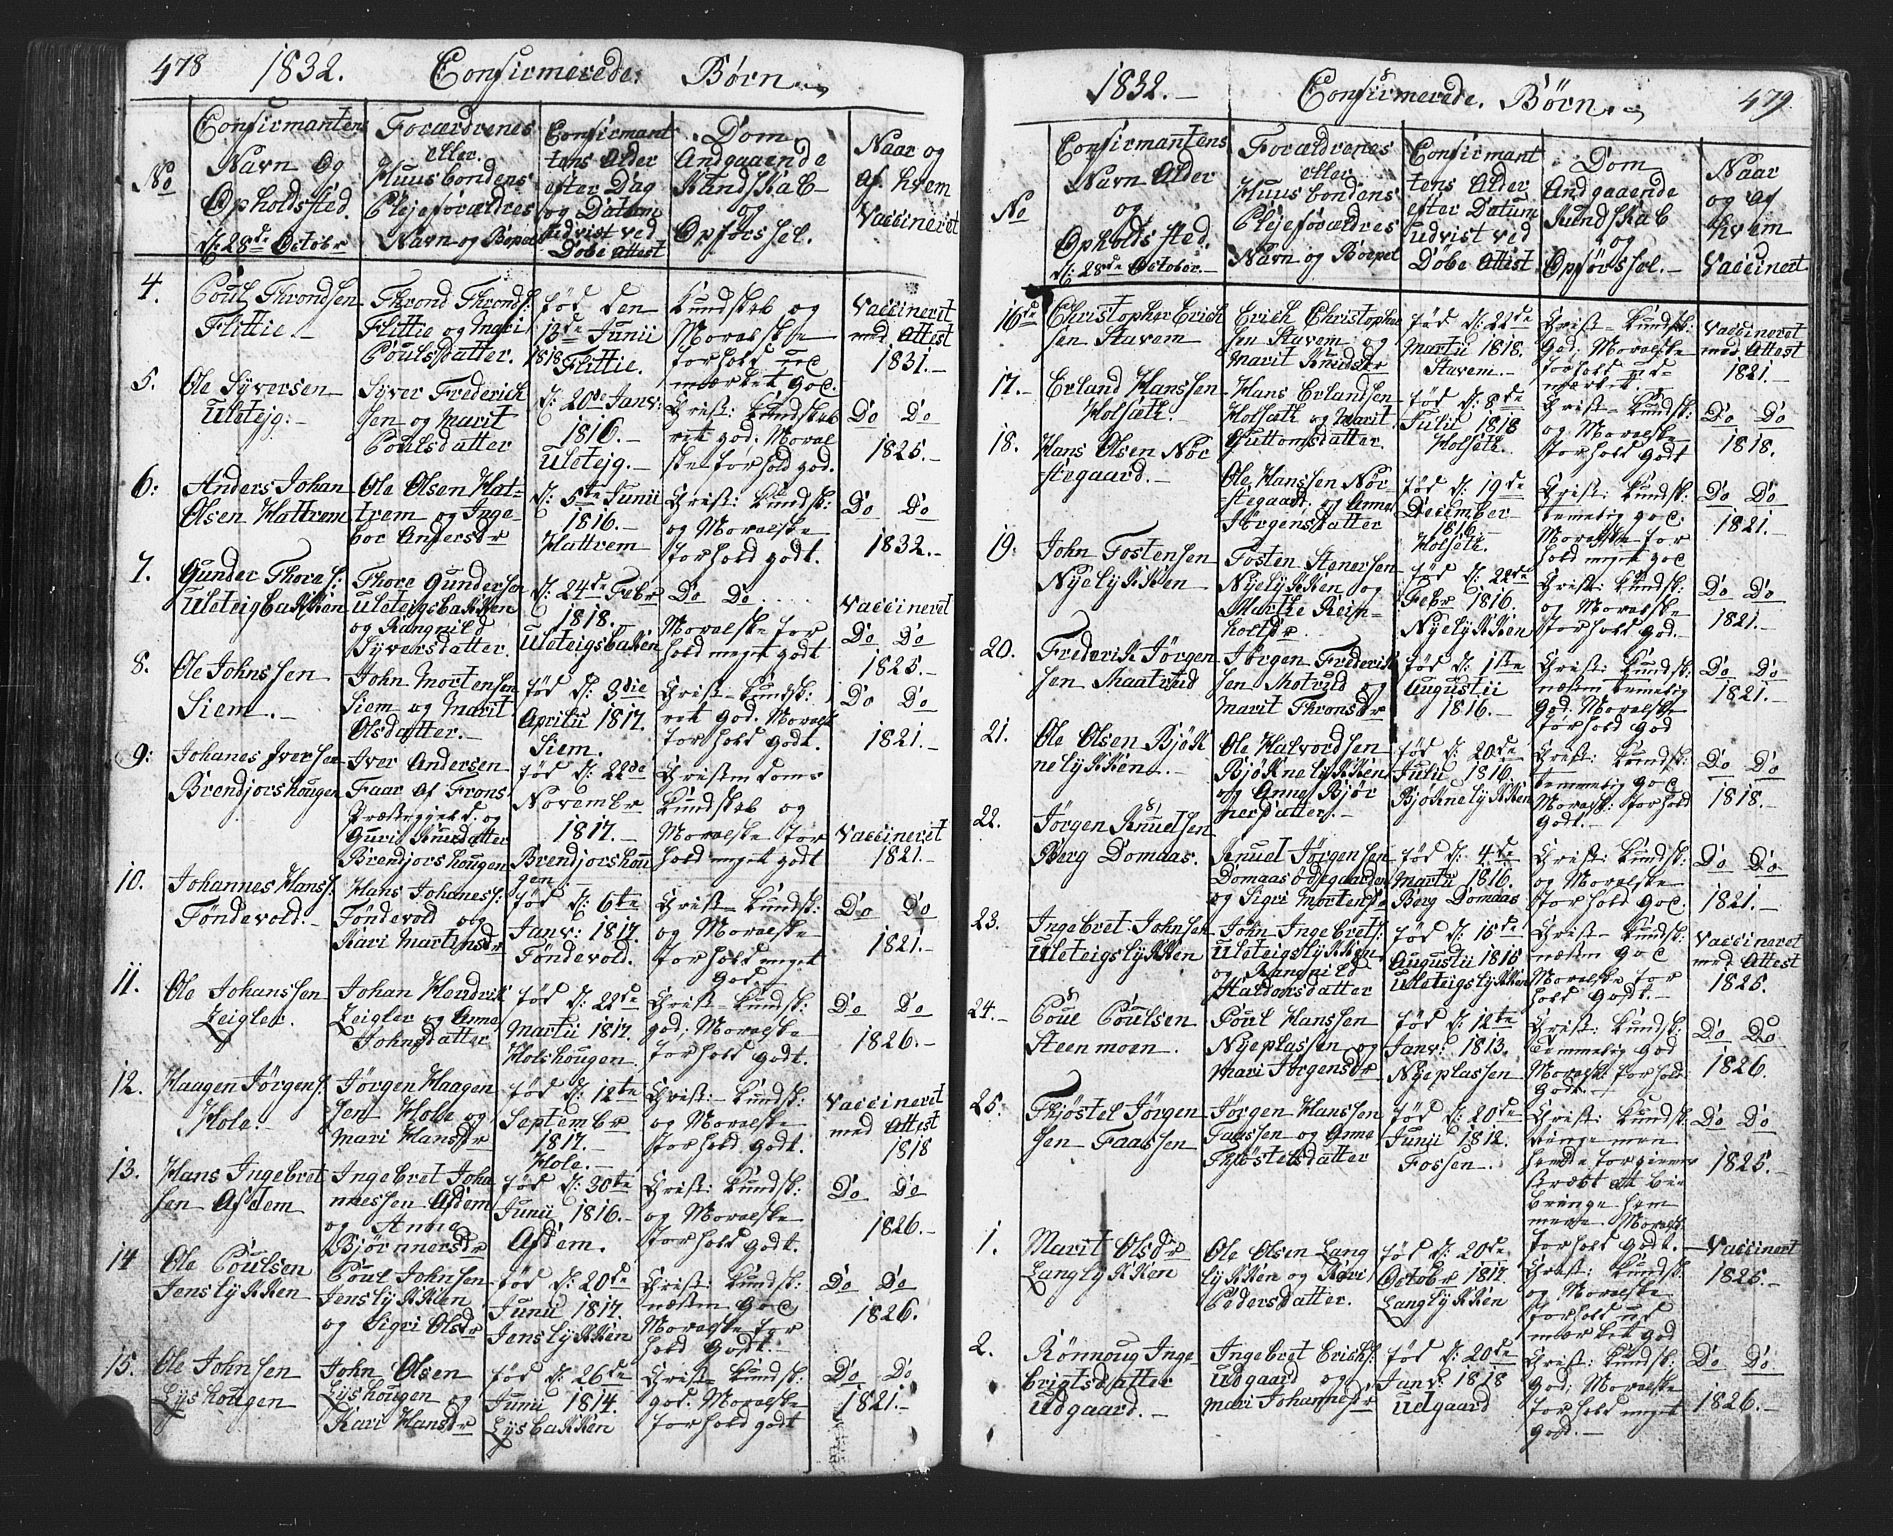 478 1832. Confirmerede. Børn.
No
Confirmantens
Navn og
Opholdsted.
d: 28de Octobr
Forældrenes
eller
Huusbondens
Plejeforældres
Navn og Bopæl
Confirmant
tens Alder
efter Dag
og Datum
udvist ved
Døbe Attest
Dom
Andgaaende
Kundskab
og
Opførssel.
Naar og
af hvem
Vaccineret
4.
Poul Throndsen
Flittie.
Thrond Thronds:
Flittie og Mari
Poulsdatter.
fød den
13de Junii
1818
Flittie.
Kundskab og
Moralske
forhold
Vaccineret
med Attest
1831.
5.
Ole Syversen
Uleteig:
Syver Frederich
sen og Marit
Poulsdatter
d: 20de Janv:
1816.
Uletejg.
Christ: Kundskab
ret god: Moral
ske forhold god.
Do Do
1825.
6:
Anders Johan
Olsen Hattrem
Ole Olsen Hat-
trem og Inge-
bor Andersdr
d: 5te Junii
1816.
Hattrem
Christ: Kundsk:
og Moralske
forhold godt.
Do Do
1832.
7.
Gunder Thores:
Uleteigbakken
Thore Gunders
Uleteigsbakken
og Rangnild
Syversdatter.
d: 24de Febr
1818.
Uleteigsbakken
Do Do
Moralske for
hold meget godt
Vaccineret
Do Do
1825.
8.
Ole Johnssen
Siem.
John Mortensen
Siem og Marit
Olsdatter.
fød d: 3die
Aprilii 1817.
Siem.
Christ Kundsk:
ret god. Moralsk
forhold godt.
Do Do
1821.
9:
Johanes Iversen
Brendjorshougen
Iver Andersen
Faar af Frons
Præstegjeld. og
Guri Knudsdatter
Brendjorshougen
fød d: 22de
Novembr
1817.
Brendjorshou
gen
Christendoms
Kundskab og
Moralske for
hold meget godt
Vaccineret
1821.
10.
Johannes Hanss.
Tøndevold.
Hans Johaness:
Tøndevold og
Kari Martinsdr
fød d: 6te
Janv: 1817.
Tøndevold.
Christ Kundsk:
og Moralske
forhold meget
God.
Do Do
1821.
11.
Ole Johanssen
Zeigler.
Johan Hendrik
Zeigler og Anne
Johnsdatter
fød d: 22de
Martii 1817.
Holshougen
Christ Kundsk:
god; Moralske
forhold godt.
Do Do
1826.
12.
Haagen Jørgens.
Hole.
Jørgen Haagen
sen Hole og
Mari Hansdr
fød d: 12te
Septembr
1817.
Hole.
Christ Kundsk:
og Moralske
forhold godt.
Vaccineret
med Attest
1818
13.
Hans Ingebret
sen Afdem
Ingebret Joha
nnessen Afdem
og
Bjørnnersdr
fød d: 30te
Junii 1816.
Afdem.
Christ: Kundsk:
og Moralske
forhold godt.
Do Do
1826.
14
Ole Poulsen
Jenslykken
Poul Johnsen
Jenslykken
og Sigri Olsdr
fød d: 20de
Junii 1817.
Jenslykken
Christ: Kundsk:
næsten God,
Moralske for
hold Godt.
Do Do
1826.
15.
Ole Johnsen
Lyshougen
John Olsen
Lyshougen og
Kari Hansdr
fød d: 26de
Junii 1814.
Lysbakken
Christ Kundsk:
god. Moralske
forhold godt
Do Do
1821.
1832. Confirmerede. Børn. 479
No
Confirmantens
Navn Alder
og
Opholdsted.
d: 28de October.
Forældrenes
eller
Huusbondens
Plejeforældres
Navn og Boepel
Confirmant
tens Alder
efter Datum
udvist ved
Døbe Attest
Dom
Andgaaende
Kundskab
og
Opførssel.
Naar
og af
hvem
Vaccinert
16de
Christopher Erich
sen Stavem
Erich Christopher
sen Stavem og
Marit Knudsdr
fød d: 22de
Martii 1818.
Stavem.
Christ Kundsk:
God; Moralske
forhold
Vaccineret
med Attest
1821.
17.
Erland Hanssen
Holseth.
Hans Erlandsen
Holseth og Marit
Guttomsdatter.
fød d: 8de
Julii 1818
Holseth.
Christ Kundsk:
og Moralske
forhold godt
Do Do
1818.
18.
Hans Olsen Nor
stegaard.
Ole Hanssen Nor-
stegaard; og Anne
Jørgensdatter
fød d: 19de
December
1816
Holseth.
Christ: Kundsk:
temmelig god:
Moralske for
hold meget god
Do Do
1821.
19.
John Tostensen
Nyelykken
Tosten Stenersen
Nyelykken og
Marthe Reim-
holtdr.
fød d: 22de
Febr 1816.
Nyelykken
Christ: Kundsk:
og Moralske
forhold god.
Do Do
1821.
20.
Frederik Jørgen
sen
Jørgen Frederik
sen og
Marit Thronsdr
fød d: 1ste
Augustii
1816.
Christ: Kundsk:
næsten temmelig
God. Moralske
forhold god
Do Do
1821.
21.
Ole Olsen Bjøk
nelykken.
Ole Halvordsen
Bjøknelykken
og Anne Bjør
nersdatter.
fød d: 20de
Julii 1816.
Bjøknelykken
Christ: Kundsk:
temmelig God
Moralsk: forhold
Godt.
Do Do
1818.
22.
Jørgen Knudsen
Berg Domaas.
Knuel Jørgensen
Domaas ødegaarden
og Sigri Mortensdr
fød d: 4de
Martii 1816.
Berg Domaas
Christ: Kundsk:
og Moralske
forhold God.
Do Do
1821.
23.
Ingebret Johnsen
Uleteigslykken
John Ingebrets:
Uleteigslykken
og Rangnild
Haldorsdatter
fød d: 15de
Augustii 1815
Uleteigslykken
Christ Kundsk:
næsten God
Moralske for
hold Godt.
Vaccineret
med Attest
1825.
24.
Poul Poulsen
Steenmoen.
Poul Hanssen
Nyeplassen og
Mari Jørgensdr
fød d: 12te
Janv: 1813.
Nyeplassen
Christ: Kundsk:
temmelig God
Moralsk: forhold
Godt.
Do Do
1826.
25.
Thjøstel Jørgen
sen Faassen
Jørgen Hanssen
Faassen og Anne
Thjøstelsdatter
fød d: 20de
Junii 1812.
Fossen.
Christ: Kundsk:
ringe men
bringe ham
mere. Moralsk:
forhold godt.
Do Do
1825.
1.
Marit Olsdr
Langlykken
Ole Olsen Lang
lykken og Kari
Pedersdatter.
fød d: 20de
Octobr 1817.
Langlykken
Christ: Kundsk:
og Moralske
forhold ud
mærket god
Vaccinert
1825.
2.
Rønnoug Inge-
brigtsdatter
Udgaard.
Ingebret Erichs:
Udgaard og
Mari Johannesdr
fød d: 20de
Janv: 1818
Udgaard
Christ: Kundsk:
God; Moralske
forhold meget
God.
Do Do
1826.